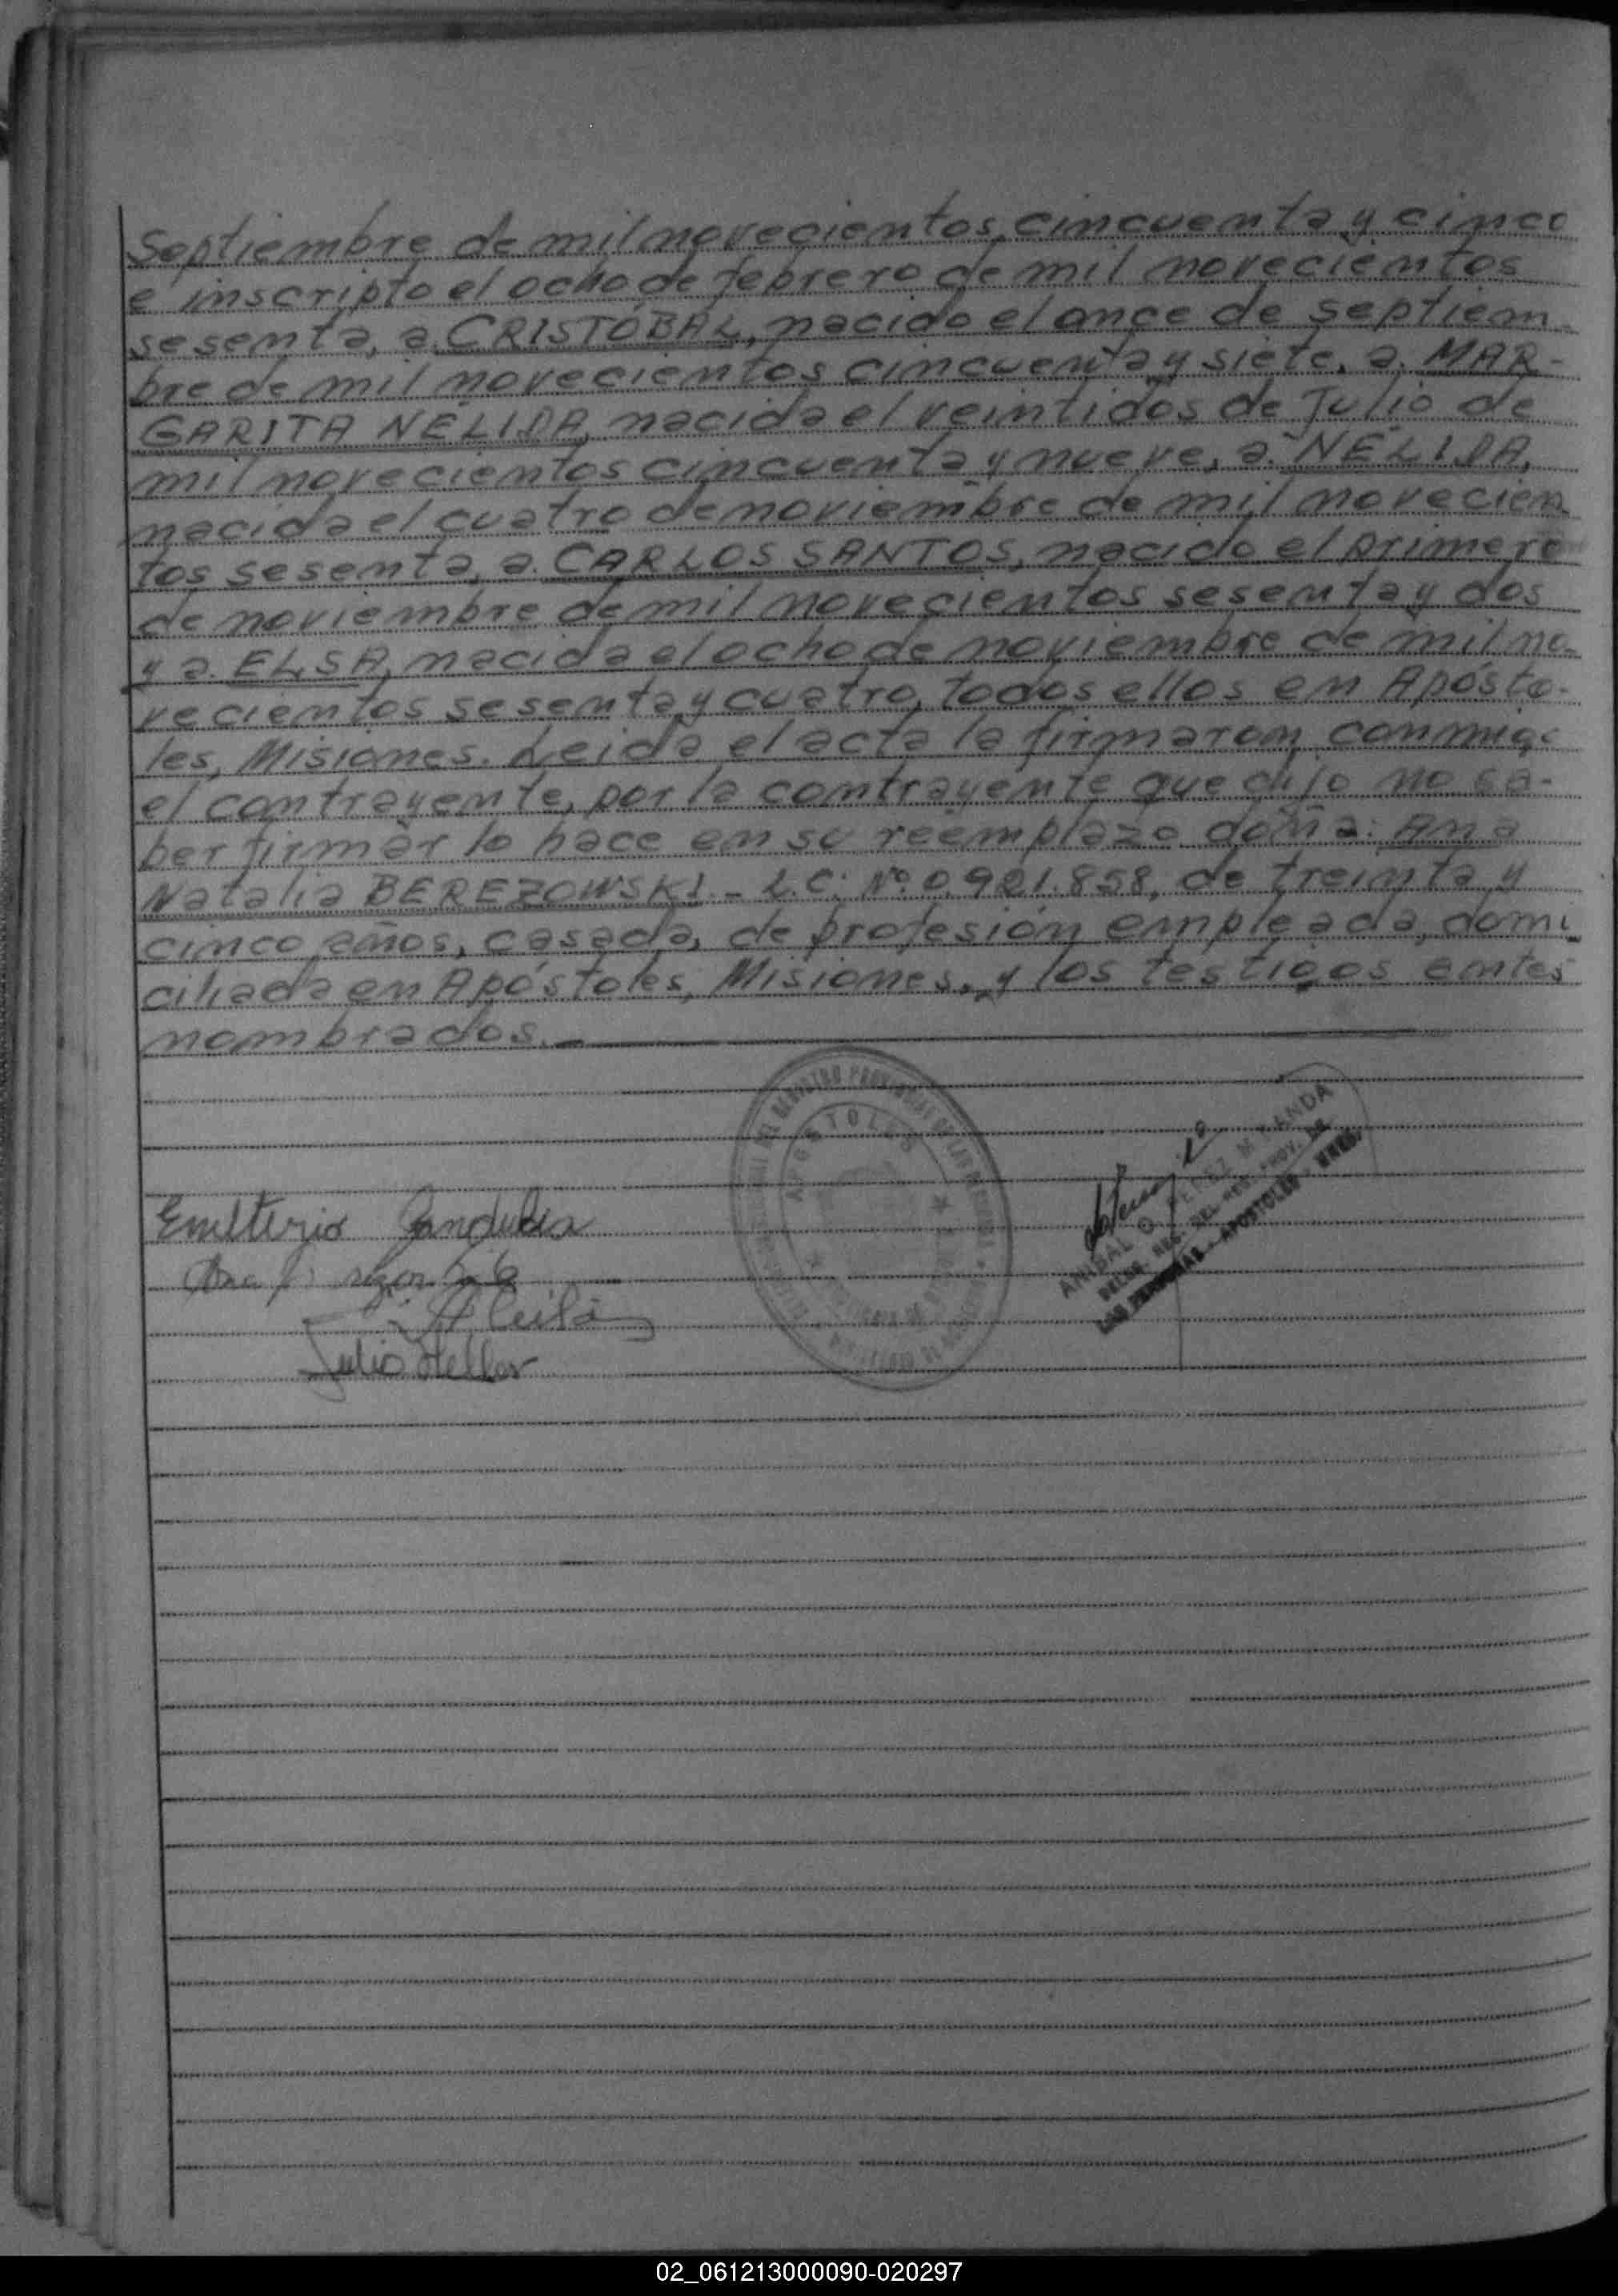 Septiembre de mil novecientos cincuenta y cinco
é inscripto el ocho de febrero de mil novecientos
sesenta, a CRISTÓBAL, nacido el once de septiem-
bre de mil novecientos cincuenta y siete, a MAR-
GARITA NÉLIDA, nacida el veintidos de Julio de
mil novecientos cincuenta y nueve, a NÉLIDA,
nacida el cuatro de noviembre de mil novecien-
tos sesenta, a CARLOS SANTOS, nacido el primero
de noviembre de mil novecientos sesenta y dos
y a ELSA, nacida el ocho de noviembre de mil no-
vecientos sesenta y cuatro, todos ellos en Apósto-
les, Misiones. Leida el acta la firmaron, conmigo
el contrayente, por la contrayente que dijo no sa-
ber firmar lo hace en su reemplazo doña: Ana
Natalia BEREZOWSKI.- L.C. Nº 0.901.858, de treinta y
cinco años, casada, de profesión empleada, domi-
ciliada en Apóstoles, Misiones, y los testigos antes
nombrados.
APOSTOLES
ANIBAL O. PEREZ MIRANDA
DELEG. REG. DEL REG. PROV. DE
LAS PERSONAS - APOSTOLES - MNES.
Emilterio
Julio Heller
02_061213000090-020297